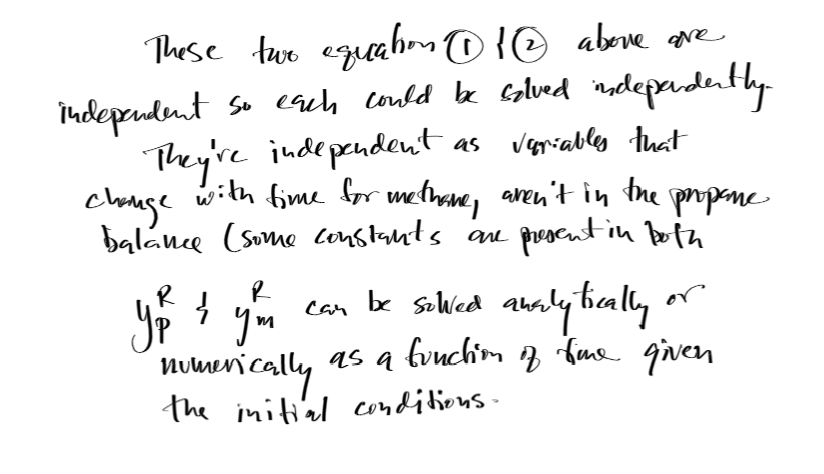 These two equation ① & ② above are
independent so each could be solved independently.
They're independent as variables that
change with time for methane, aren't in the propane
balance (some constants are present in both
y_p^R & y_m^R can be solved analytically or
numerically as a function of time given
the initial conditions.